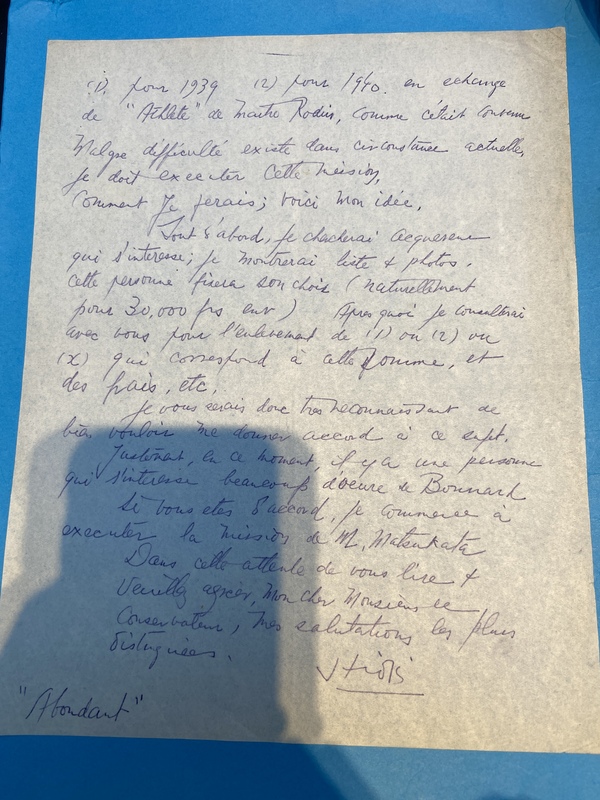 (1) pour 1939 (2) pour 1940. en echange
de "Athlete" de Maitre Rodin, comme c'était convenu
Malgre difficulté existe dans circonstance actuelle,
je doit executer cette mission,
Comment je ferais; voici mon idée,
Tout d'abord, je chercherai acquereur
qui s'interesse; je montrerai liste & photos.
cette personne fixera son choix (naturellement
pour 30,000 frs env) Apres quoi je consulterai
avec vous pour l'enlevement de (1) ou (2) ou
(X) qui correspond à cette somme, et
des frais, etc.
Je vous serais donc tres reconnaissant de
bien vouloir me donner accord à ce sujet.
Justement, en ce moment, il y a une personne
qui s'interesse beaucoup d'oeuvre de Bonnard
Si vous etes d'accord, je commence à
executer la mission de M. Matsukata
Dans cette attente de vous lire &
Veuillez agréer, Mon cher Monsieur le
Conservateur, mes salutations les plus
distinguées.
"Abondant"